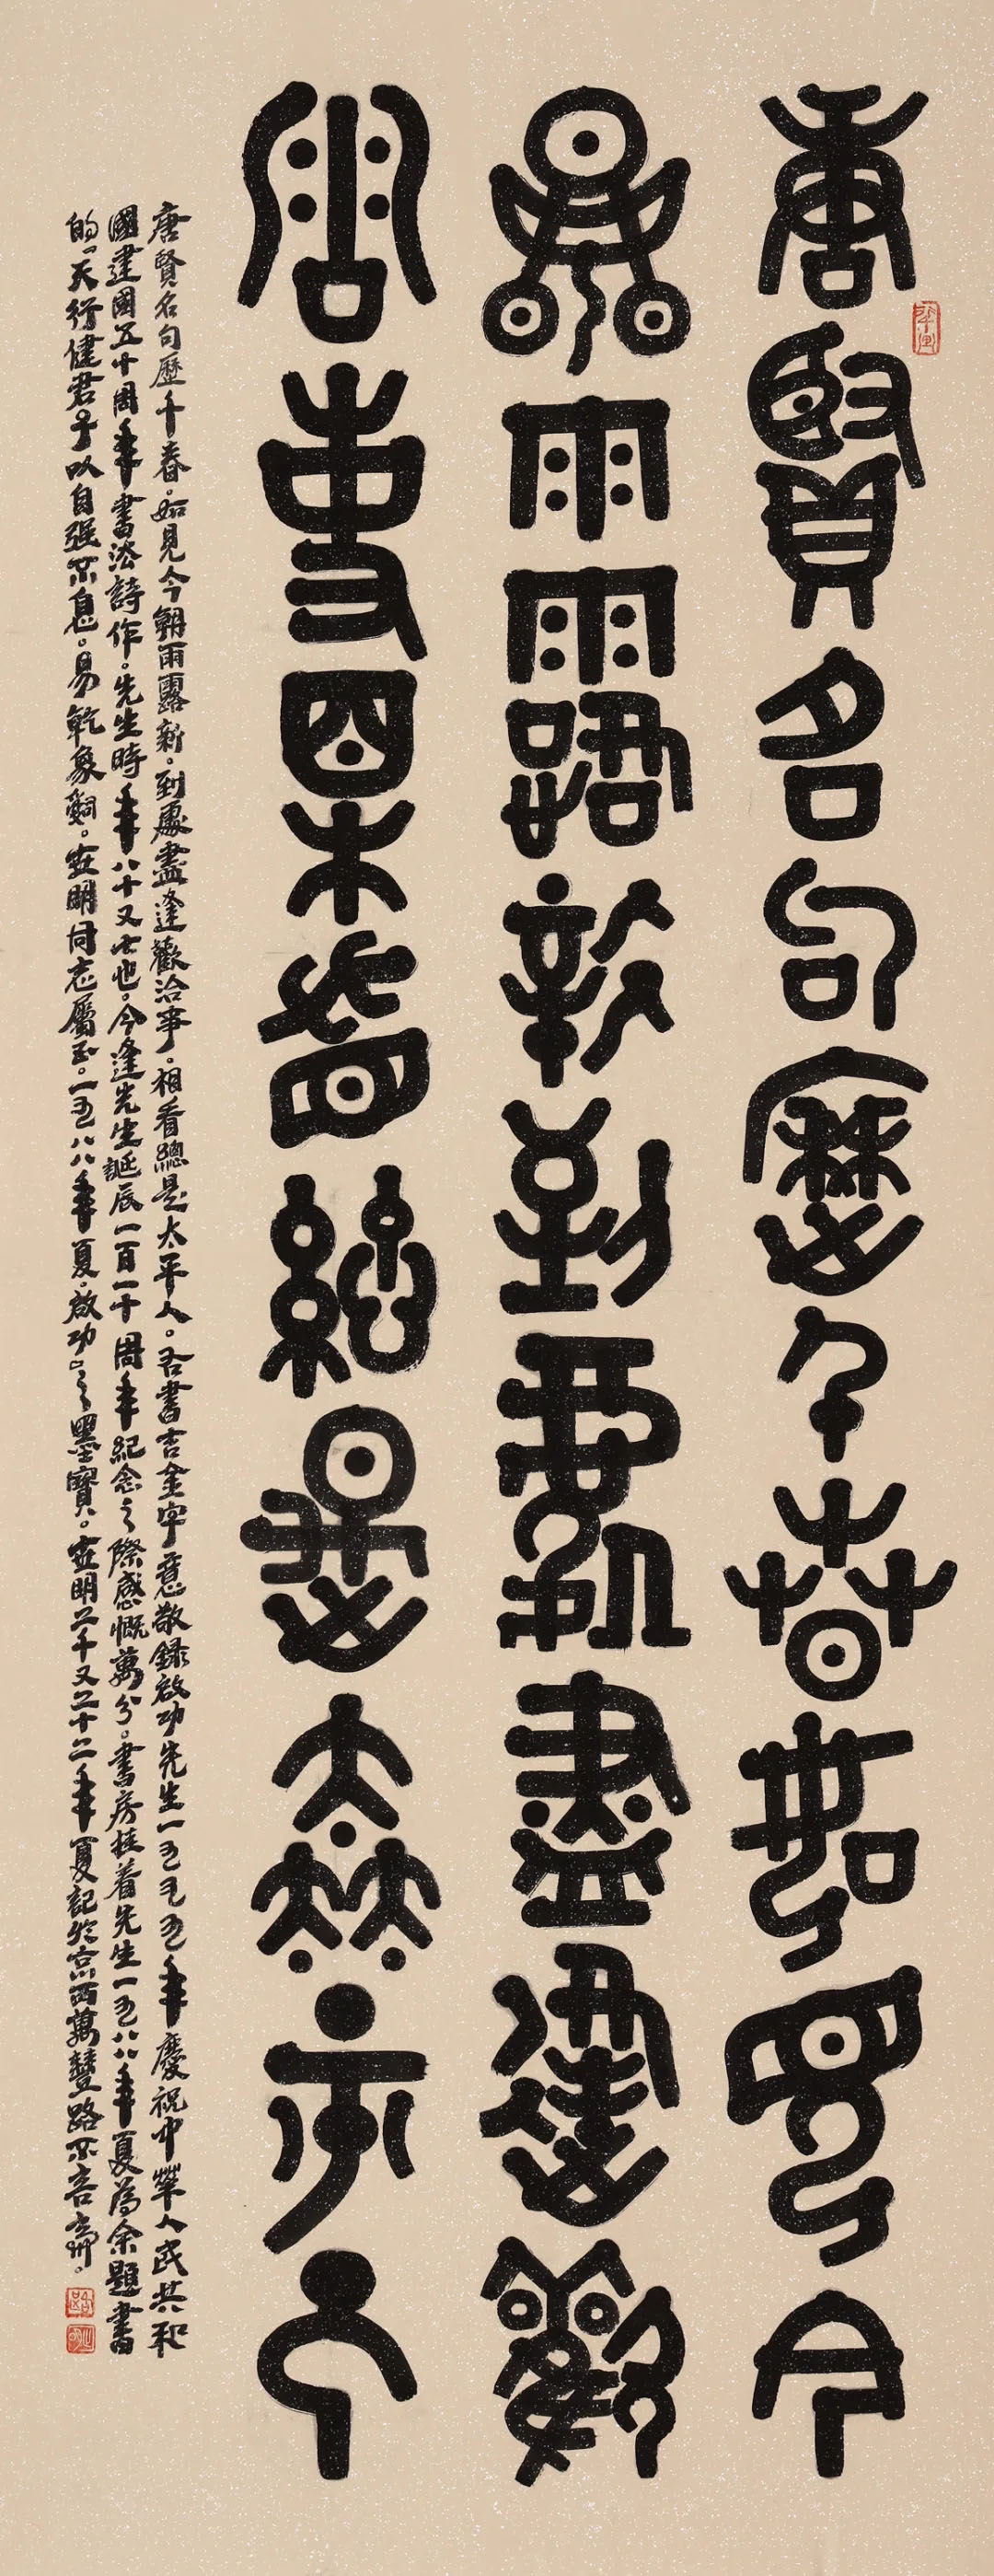 唐賢名句歷千春如見今
朝雨露新到處盡逢歡
洽事相看總是太平人
唐賢名句歷千春。如見今朝雨露新。到處盡逢歡洽事。相看總是太平人。右書吉金字意敬錄啟功先生一九九九年慶祝中華人民共和
國建國五十周年書法詩作。先生時年八十又七也。今逢先生誕辰一百一十周年紀念之際感慨萬分。書房挂着先生一九八八年夏為余題書
的「天行健君子以自强不息。易乾象辭。明同志屬正。一九八八年夏。啟功」之墨寶。明二千又二十二年夏記於京西萬豐路不言齋。